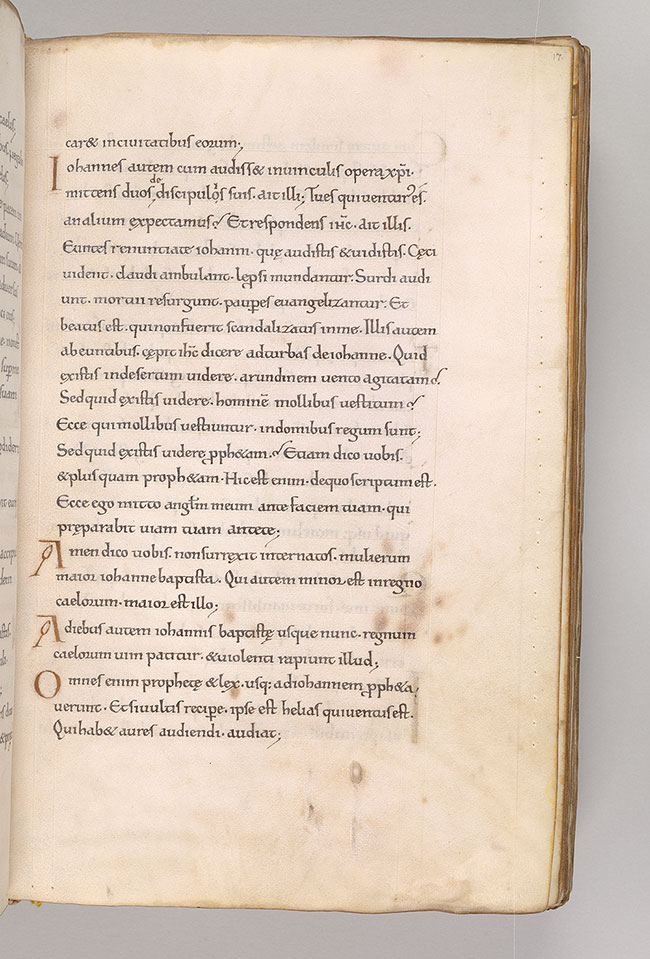 17.
car& inciuitatibus eorum;
Iohannes autem cum audiss& inuinculis opera xp̄i.
mittens duos de discipulis suis. ait illi; Tues quiuenturus es.
analium expectamus? Etrespondens ih̄c. ait illis.
Euntes renunciate iohanni. quę audistis &uidistis. Cęci
uident. claudi ambulant. lępsi mundantur. Surdi audi
unt. mortui resurgunt. pauperes euangelizantur. Et
beatus est. quinonfuerit scandalizatus inme. Illis autem
abeuntibus. cępit ih̄c dicere adturbas deiohanne. Quid
existis indesertum uidere. arundinem uento agitatam?
Sedquid ęxistis uidere. hominē mollibus uestitum?
Ecce qui mollibus uestiuntur. indomibus regum sunt;
Sedquid ęxistis uidere ꝓph&am? Etiam dico uobis.
&plus quam proph&am. Hic est enim. dequo scriptum est.
Ecce ego mitto angl̄m meum ante faciem tuam. qui
pręparabit uiam tuam antete;
Amen dico uobis. nonsurrexit internatos. mulierum
maior iohanne baptista. Qui autem minor est inregno
caelorum. maior est illo;
Adiebus autem iohannis baptistę usque nunc. regnum
caelorum uim patitur. &uiolenti rapiunt illud;
Omnes enim prophetę & lęx. usq; adiohannem ꝓph&a
uerunt. Etsiuultis recipere. ipse est helias quiuenturus est.
Quihab& aures audiendi. audiat;